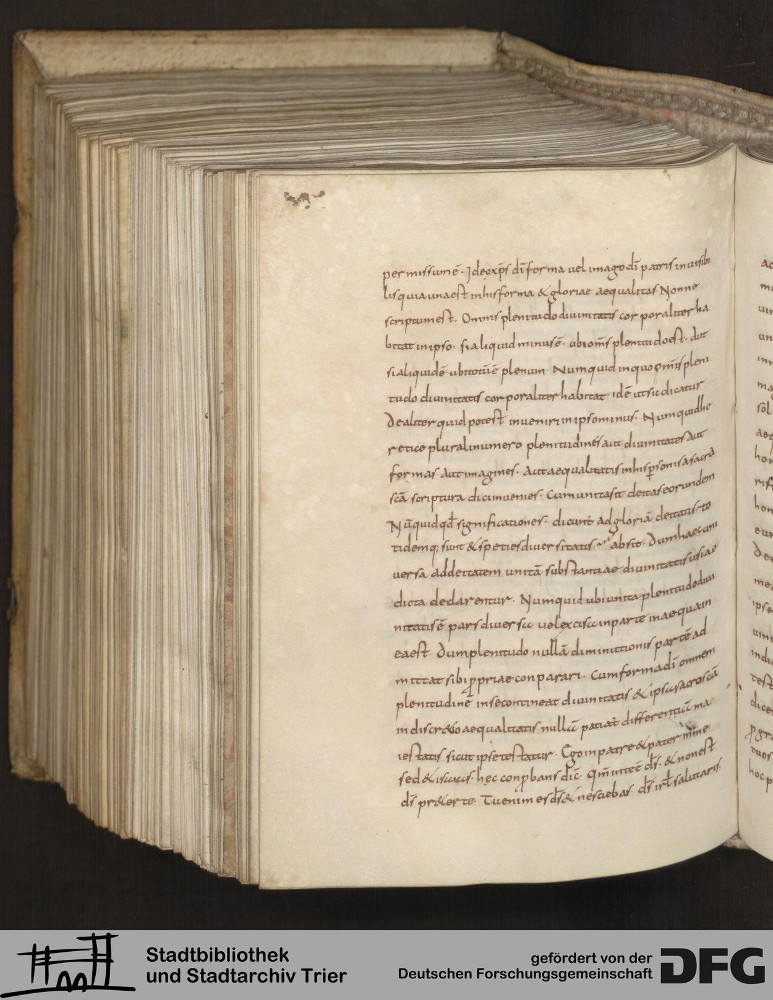 permissionē. Ideo xp̄s dī forma uel imago dī patris inuisibi
lis quia una est in his forma & gloriae aequalitas Nonne
scriptum est. Omnis plenitudo diuinitatis corporaliter ha
bitat in ipso. si aliquid minus ē. ubi om̄s plenitudo est. aut
si aliquid ē ubi totū ē plenum. Numquid in quo om̄is pleni
tudo diuinitatis corporaliter habitat idē ut sic dicatur
dealiter quid potest inueniri in ipso minus. Numquid he
retice plurali numero plenitudines aut diuinitates aut
formas aut imagines. aut aequalitatis in his psonis a sacra
scā scriptura dici inuenies. Cum unitas sit deitas eorundem
Nūquid qđ significationes. dicunt ad gloriā deitatis to
tidemq; sunt & species diuersitatis absit. Dum haec uni
uersa ad deitatem unitā substantiae diuinitatis usiae
dicta declarentur. Numquid ubi unita plenitudo diui
nitatis ē pars diuersa uel excisa in parte inaequam
ea est. Dum plenitudo nullā diminitionis partē ad
mittat sibi ppriae conparari. Cum forma dī omnem
plenitudinē in se contineat diuinitatis & ipsu sacroscā
indiscr&o aequalitatis nullā patiat differentiā ma
iestatis sicut ipse testatur. Ego in patre & pater in me
sed & isaias hęc conpbans dic̄. Qm̄ in te ē dī̄s. & non est
dī̄s pr&er te. Tu enim es dī̄s & nesciebas. dī̄s isrl̄ saluataris.
Stadtbibliothek
und Stadtarchiv Trier
gefördert von der
Deutschen Forschungsgemeinschaft
DFG